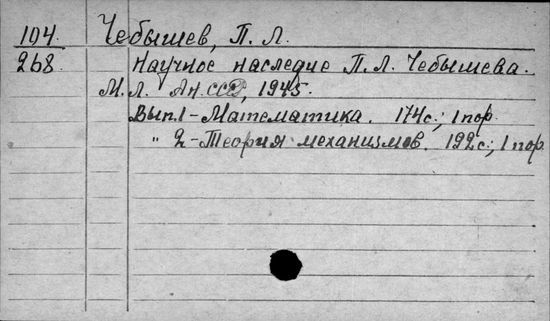 194. Чебышев, П. Л.
268. Научное наследие П. Л. Чебышева.
М. Л. Ан. СССР, 1945.
Вып. 1 - Математика. 174 с.; 1 пор.
" 2 - Теория механизмов. 192 с.; 1 пор.